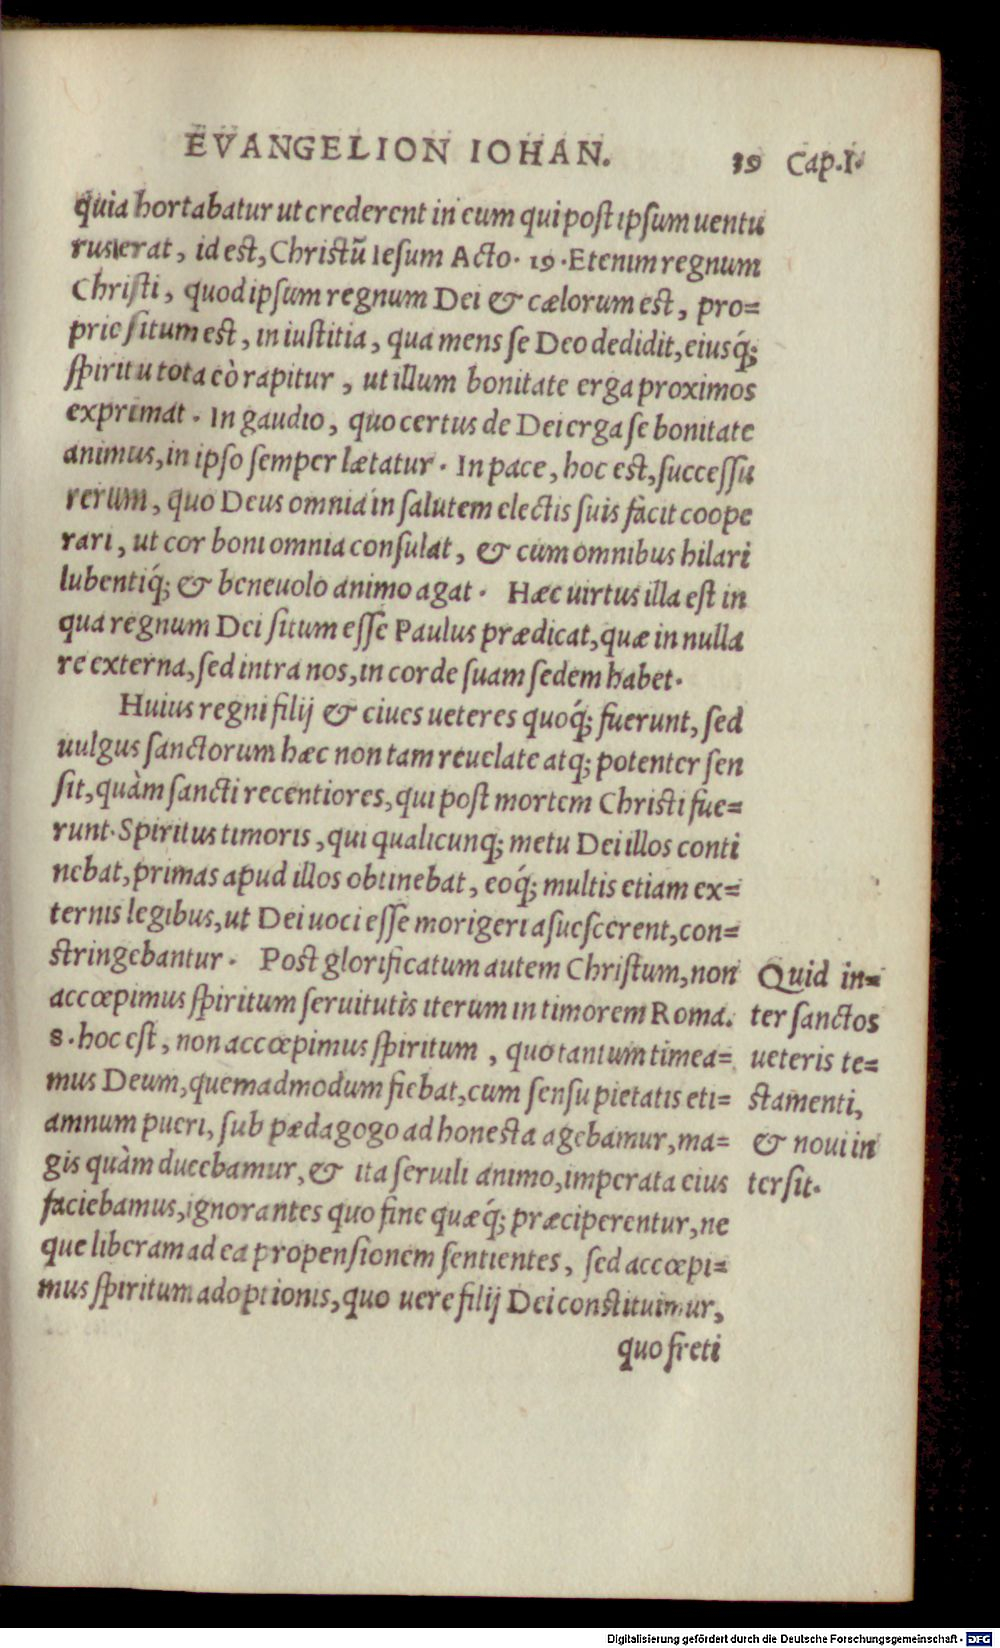 EVANGELION IOHAN.
19 Cap.I.
quia hortabatur ut crederent in eum qui post ipsum uentu
rus erat, id est, Christũ Iesum Acto. 19. Etenim regnum
Christi, quod ipsum regnum Dei & cælorum est, pro=
prie situm est, in iustitia, qua mens se Deo dedidit, eiusq́;
spiritu tota eò rapitur, ut illum bonitate erga proximos
exprimat. In gaudio, quo certus de Dei erga se bonitate
animus, in ipso semper lætatur. In pace, hoc est, successu
rerum, quo Deus omnia in salutem electis suis facit coope
rari, ut cor boni omnia consulat, & cum omnibus hilari
lubentiq́; & beneuolo animo agat. Hæc uirtus illa est in
qua regnum Dei situm esse Paulus prædicat, quæ in nulla
re externa, sed intra nos, in corde suam sedem habet.
Huius regni filij & ciues ueteres quoq́; fuerunt, sed
uulgus sanctorum hæc non tam reuelate atq; potenter sen
sit, quàm sancti recentiores, qui post mortem Christi fue=
runt. Spiritus timoris, qui qualicunq; metu Dei illos conti
nebat, primas apud illos obtinebat, eoq́; multis etiam ex=
ternis legibus, ut Dei uoci esse morigeri asuescerent, con=
stringebantur. Post glorificatum autem Christum, non
accœpimus spiritum seruitutis iterum in timorem Roma.
8. hoc est, non accœpimus spiritum, quo tantum timea=
mus Deum, quemadmodum fiebat, cum sensu pietatis eti=
amnum pueri, sub pædagogo ad honesta agebamur, ma=
gis quàm ducebamur, & ita seruili animo, imperata eius
faciebamus, ignorantes quo fine quæq́; præciperentur, ne
que liberam ad ea propensionem sentientes, sed accœpi=
mus spiritum adoptionis, quo uere filij Dei constituimur,
quo freti
Quid in=
ter sanctos
ueteris te=
stamenti,
& noui in
tersit.
Digitalisierung gefördert durch die Deutsche Forschungsgemeinschaft - DFG